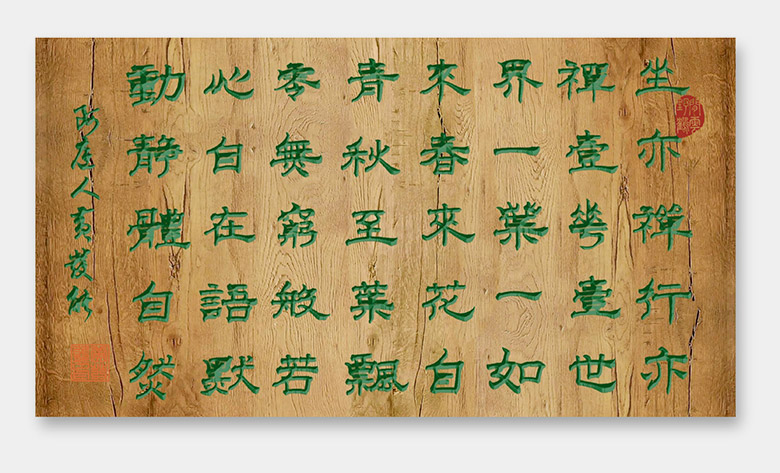 坐亦禪行亦
禪壹華壹世
界一葉一如
來春來花自
青秋至葉飄
零無窮般若
心自在語默
動靜體自然
人黄
閒雲野鶴